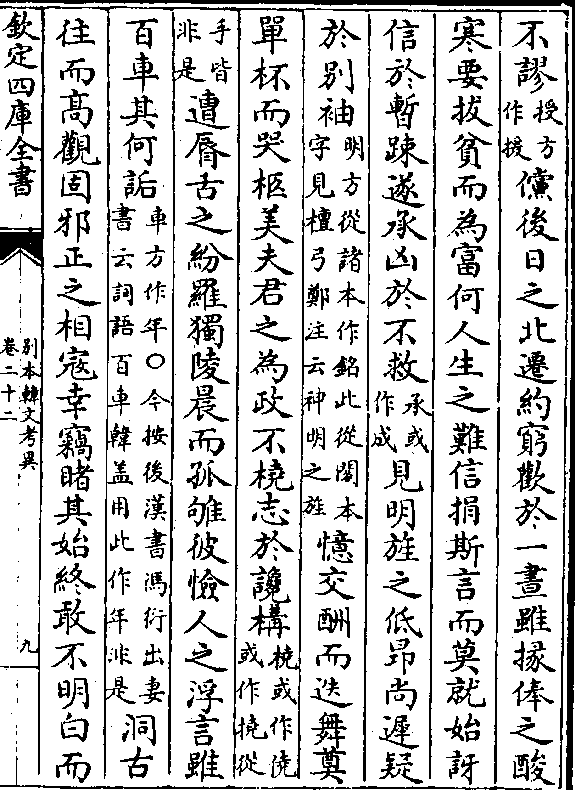 不謬授方作援儻後日之北遷約窮歡於一晝雖掾俸之酸
寒要拔貧而為富何人生之難信捐斯言而莫就始訝
信於暫踈遂承凶於不救承或作成見明旌之低昻尚遲疑
於别袖明方從諸本作銘此從閣本字見檀弓鄭注云神明之旌憶交酬而迭舞奠
單杯而哭柩美夫君之為政不橈志於讒構橈或作僥或作撓從
手皆非是遭脣古之紛羅獨陵晨而孤雊彼憸人之浮言雖
百車其何詬車方作年○今按後漢書馮衍出妻書云詞語百車韓盖用此作年非是洞古
往而髙觀固邪正之相寇幸竊睹其始終敢不明白而
欽定四庫全書
别本韓文考異
卷二十二
九